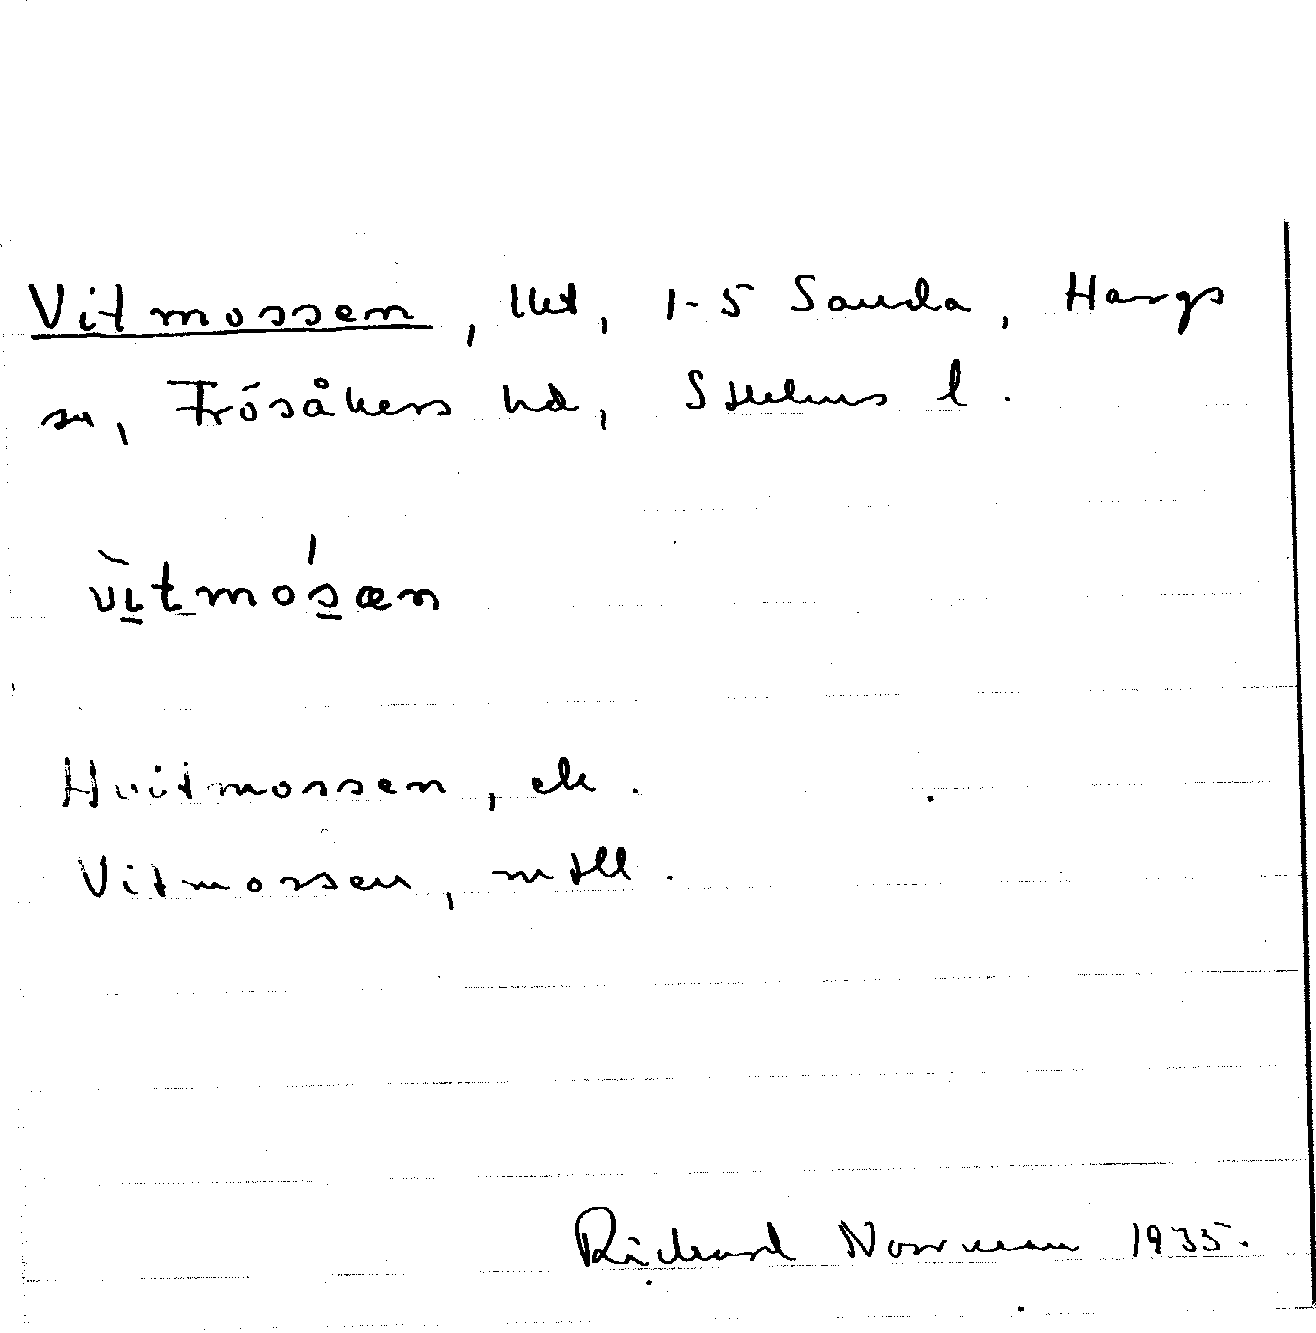 Vitmossen, lkt, 1-5 Sanda, Hargs
sn, Frösåkers hd, Sthlms l.
vìtmós̱æn
Hvitmossen, ek.
Vitmossen, mtll.
Richard Norrman 1935.